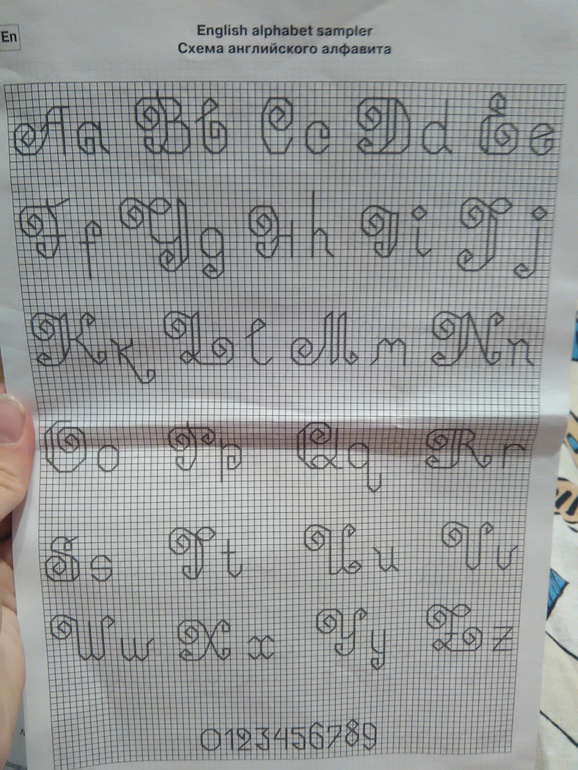 En
English alphabet sampler
Схема английского алфавита
A a B b C c D d E e
F f G g H h I i J j
K k L l M m N n
O o P p Q q R r
S s T t U u V v
W w X x Y y Z z
0123456789